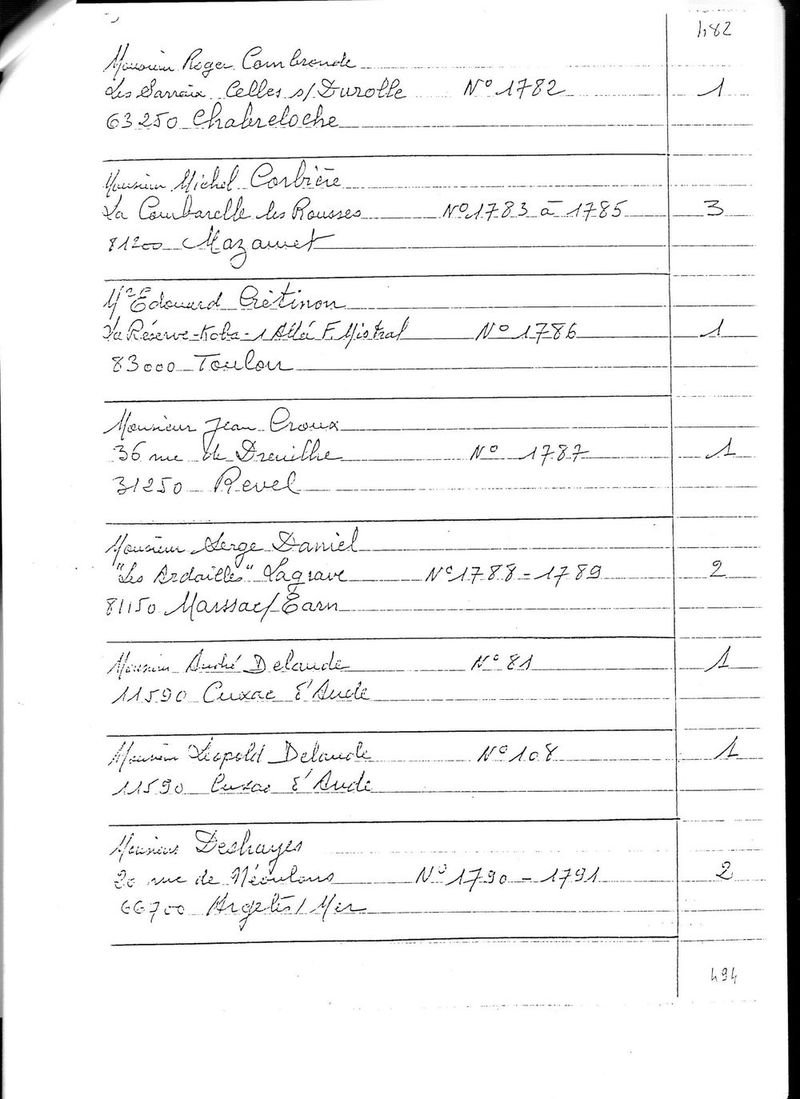 482
Monsieur Roger Combronde
Les Sarraix Celles s/Durolle N° 1782 1
63250 Chabreloche
Monsieur Michel Corbière
La Combarelle les Rousses N° 1783 à 1785 3
81200 Mazamet
Mr Edouard Crétinon
La Réserve-Koba-1 Allé F. Mistral N° 1786 1
83000 Toulon
Monsieur Jean Croux
36 rue de Dreuilhe N° 1787 1
31250 Revel
Monsieur Serge Daniel
"Les Ardailles" Lagrave N° 1788-1789 2
81150 Marssac/Tarn
Monsieur André Delaude N° 81 1
11590 Cuxac d'Aude
Monsieur Léopold Delaude N° 108 1
11590 Cuxac d'Aude
Monsieur Deshayes
20 rue de Néoulous N° 1790-1791 2
66700 Argelès/Mer
494